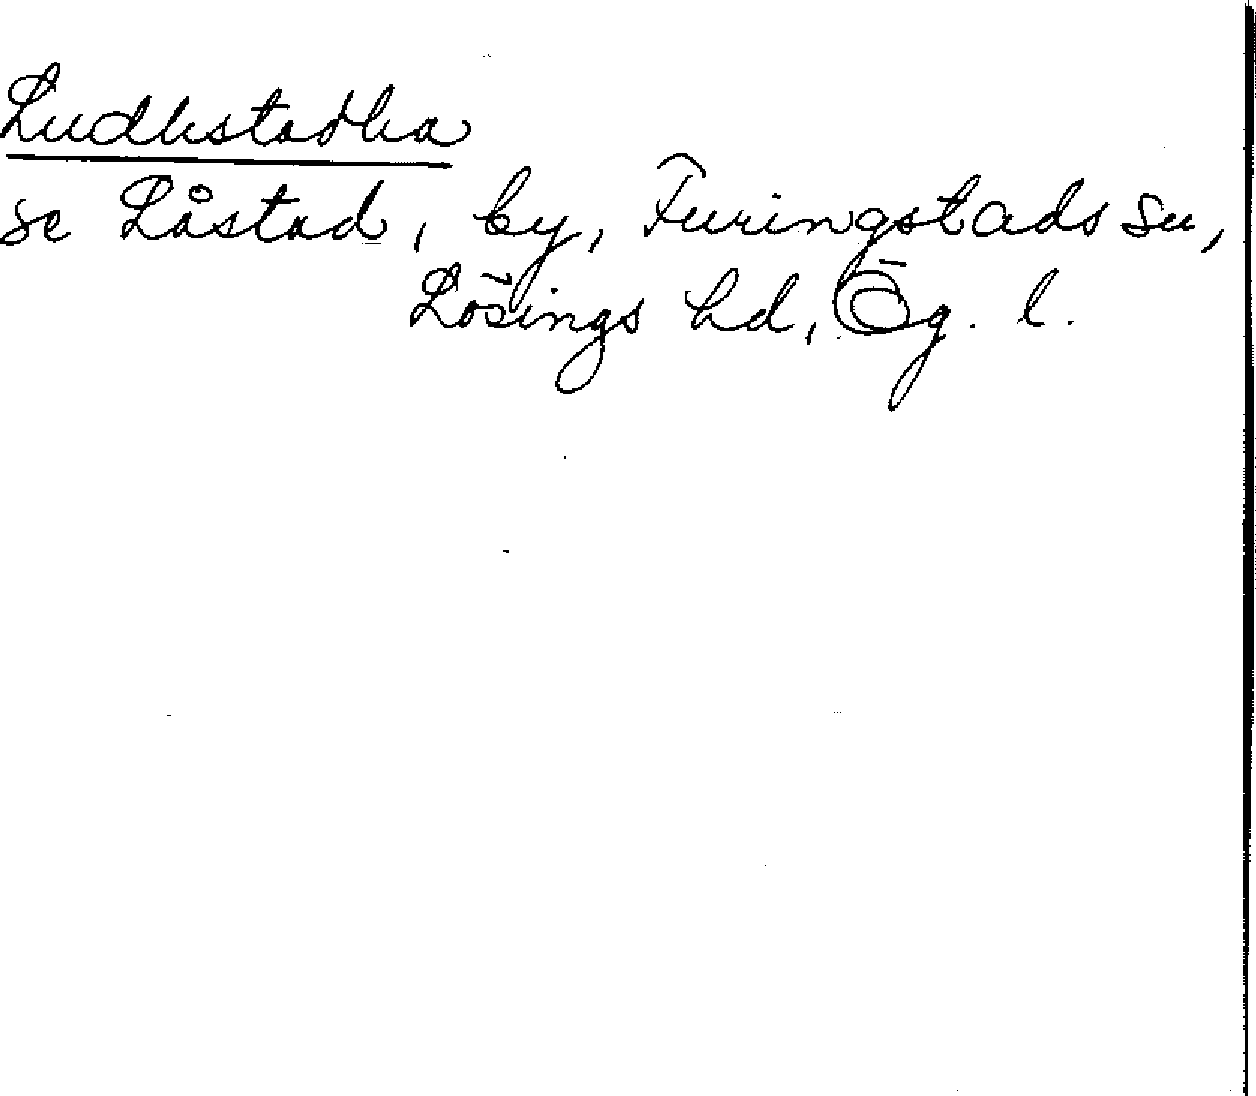 Ludhstadha
se Låstad, by, Furingstads sn,
Lösings hd, Ög. l.